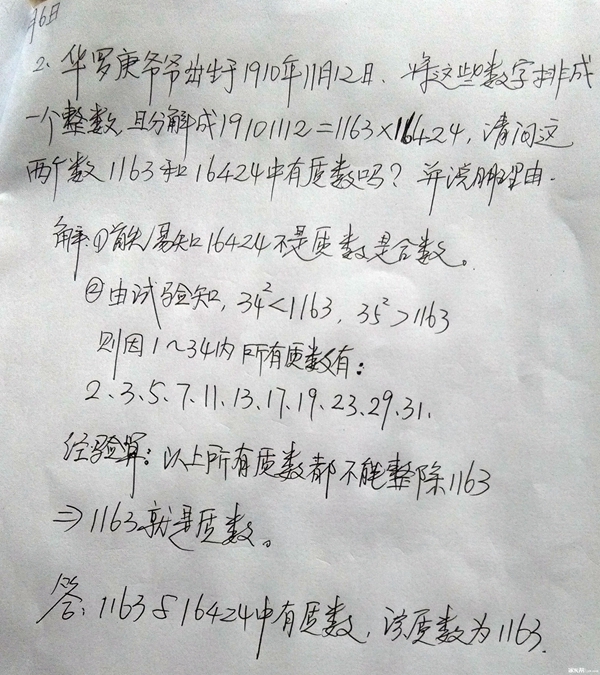 月6日
2、华罗庚爷爷出生于1910年11月12日、将这些数字排成
一个整数,且分解成19101112=1163×16424,请问这
两个数1163和16424中有质数吗?并说明理由.
解:①首先易知16424不是质数是合数。
②由试验知,34²<1163,35²>1163
则因1~34内所有质数有:
2、3、5、7、11、13、17、19、23、29、31、
经验算:以上所有质数都不能整除1163
⇒1163就是质数。
答、1163与16424中有质数,该质数为1163.